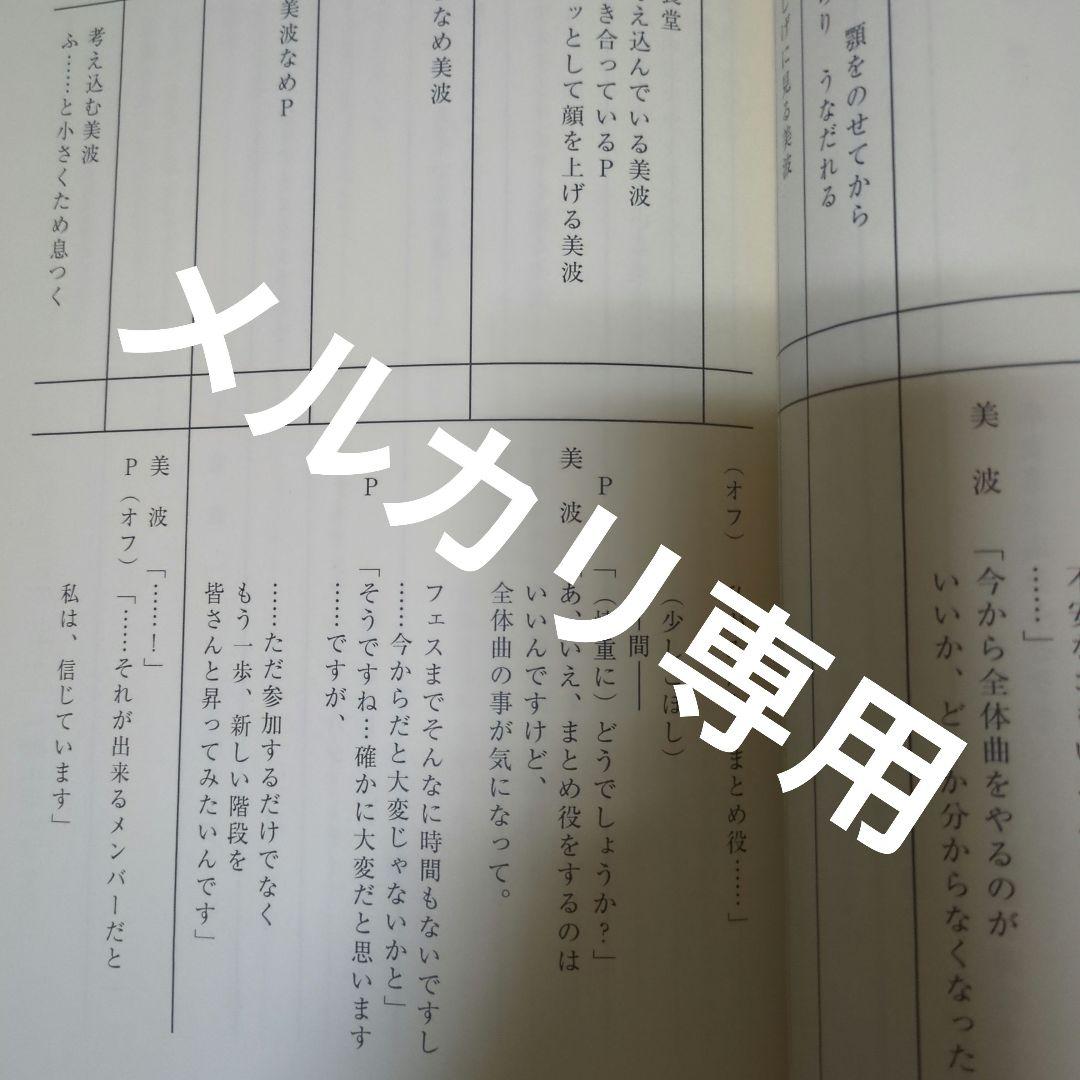 顎をのせてから
うなだれる
美波
「今から全体曲をやるのが
……」
食堂
考え込んでいる美波
向き合っているP
ッとして顔を上げる美波
なめ美波
美波なめP
考え込む美波
ふ……と小さくため息つく
(オフ)
まとめ役……」
(少し
ぼし)
間——
P「(慎重に)どうでしょうか?」
美波「あ、いえ、まとめ役をするのは
いいんですけど、
全体曲の事が気になって。
フェスまでそんなに時間もないですし
……今からだと大変じゃないかと」
P「そうですね…確かに大変だと思います
……ですが、
……ただ参加するだけでなく
もう一歩、新しい階段を
皆さんと昇ってみたいんです」
美波「……!」
P(オフ)「……それが出来るメンバーだと
私は、信じています」
メルカリ専用